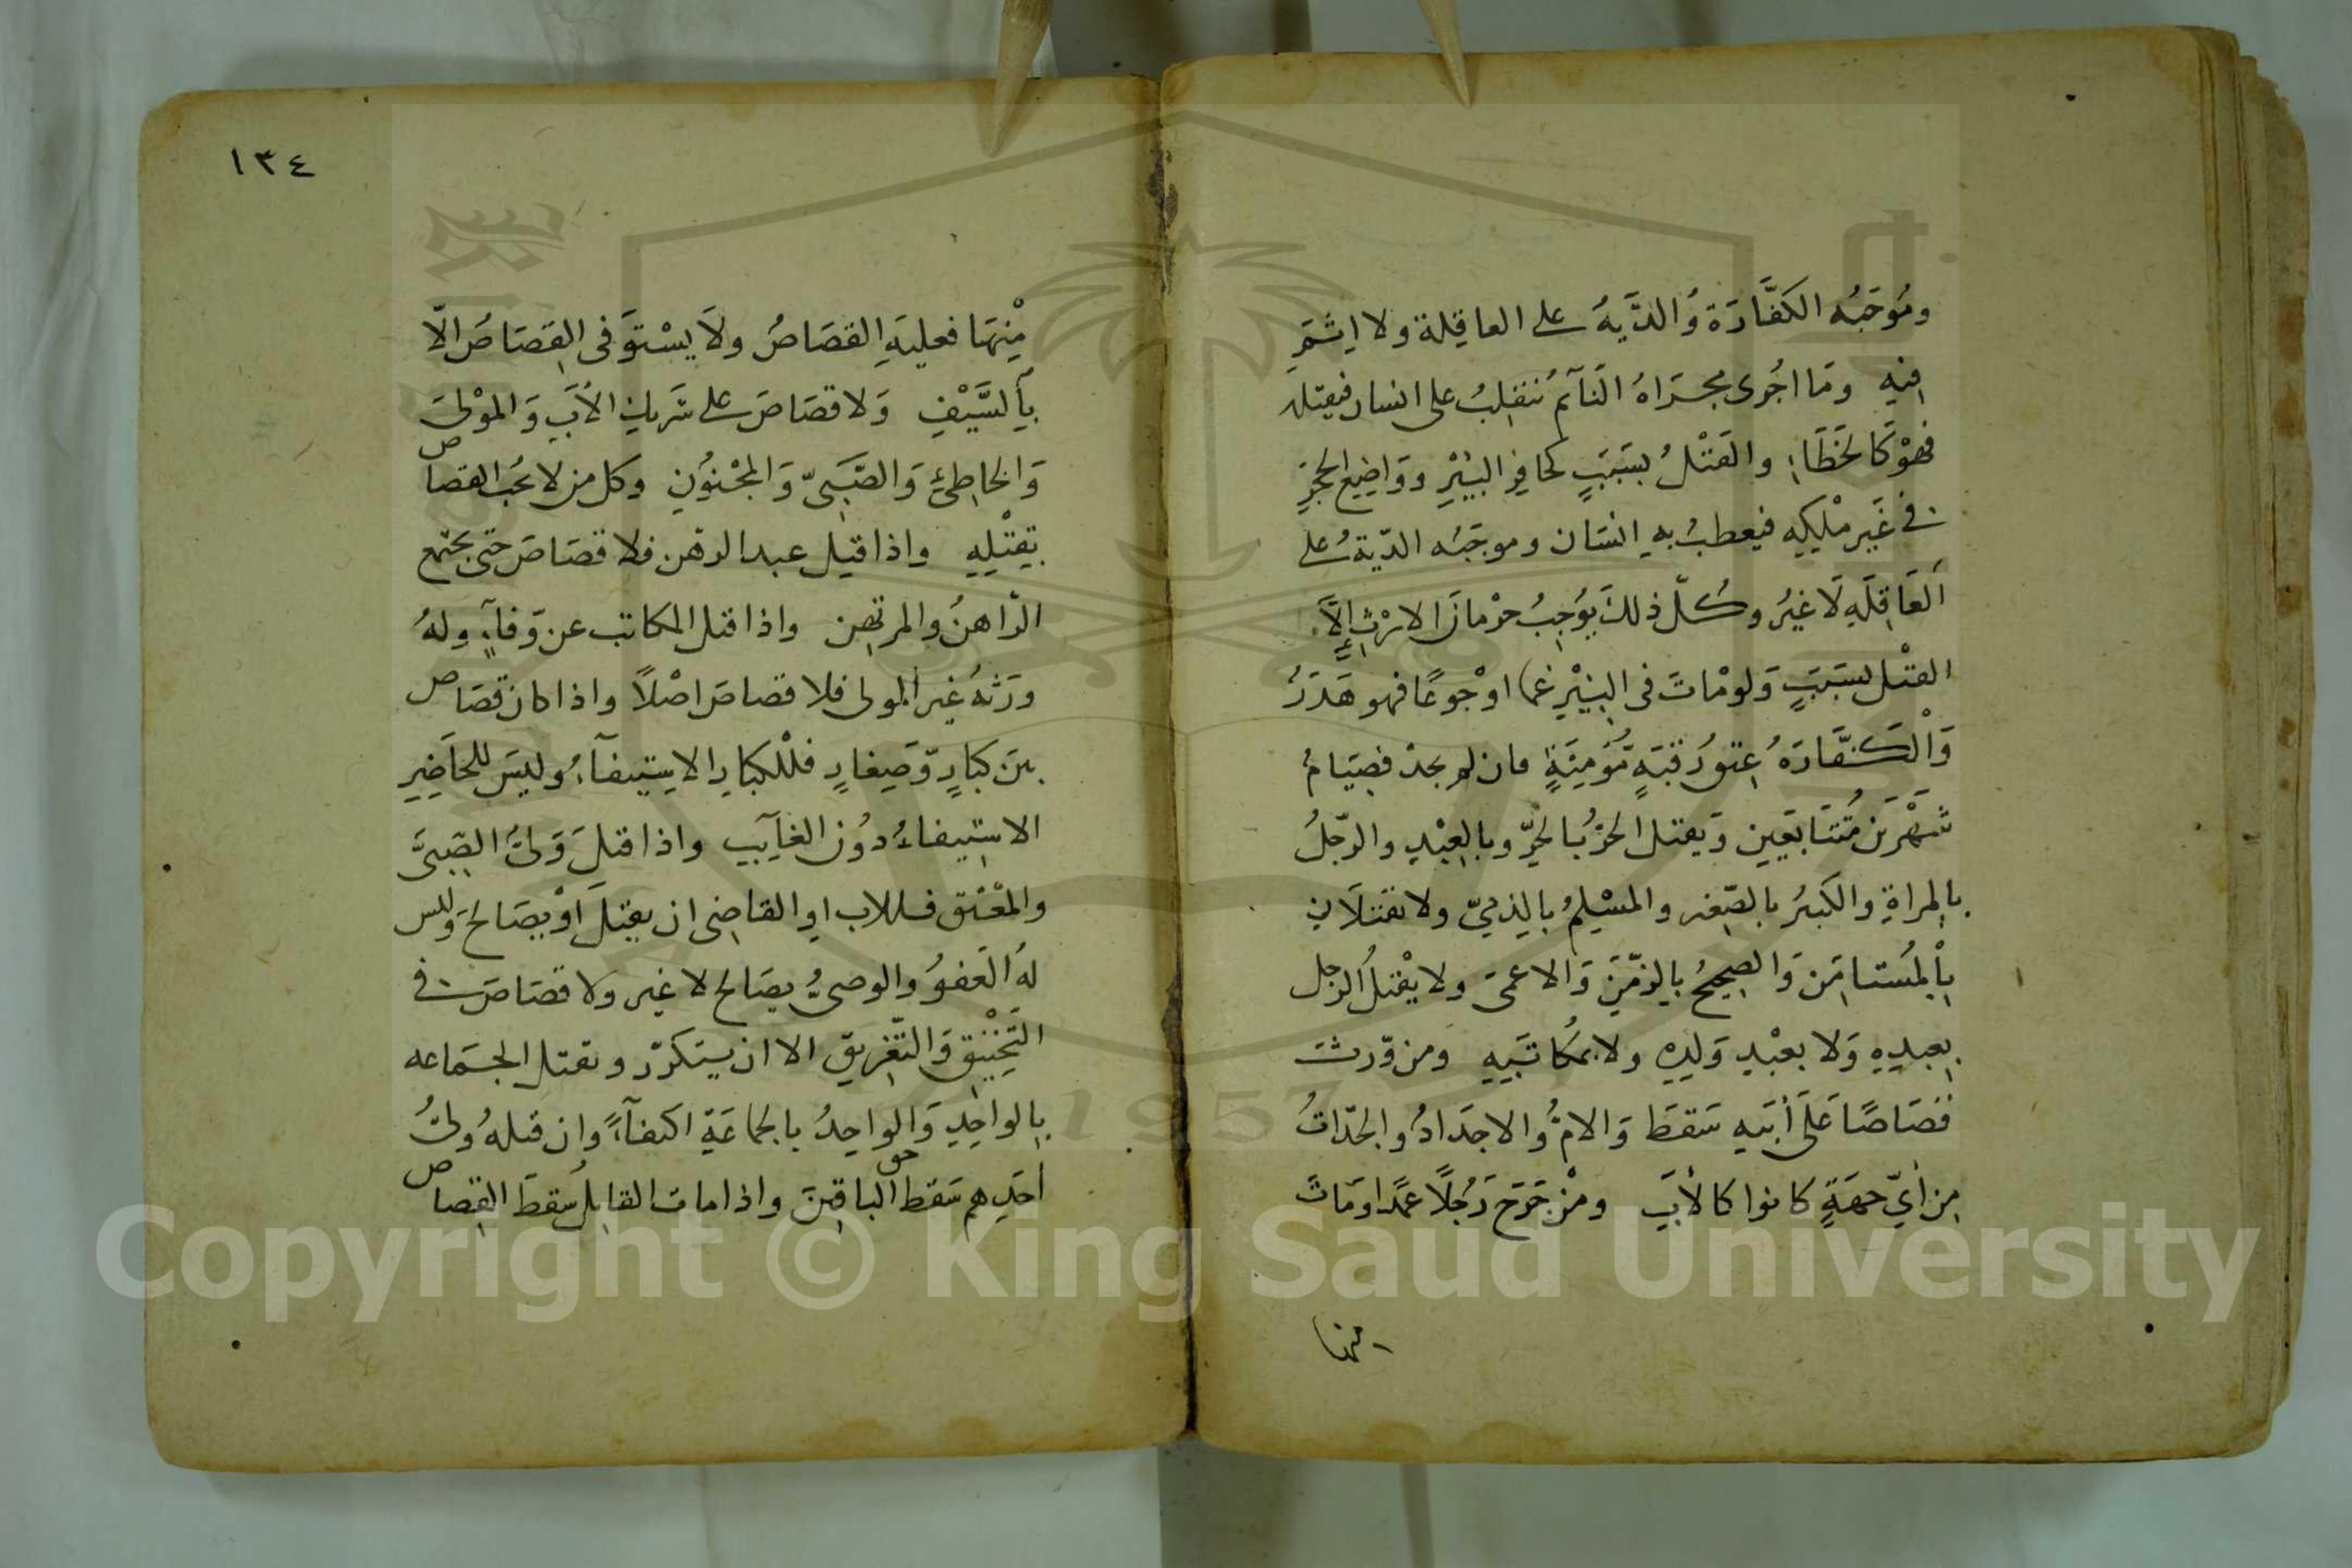 ومُوجَبُه الكَفَّارَة وُالدِّيَةُ على العاقِلة ولا اِثمَ
فيهِ ومَا اجُرى مجرَاهُ النَآئم ينقلِبُ على انسان فيقتله
فهوْ كَالخَطَاءِ والقَتْلُ بسَبَبٍ كحافِرِ البِئْرِ ووَاضِعِ الحجَرِ
فى غَيرِ مْلِكِهِ فيعطبُ بهِ انسَان وموجَبُه الدّيةُ على
العَاقِلَهِ لَا غيُر وكُلّ ذلكَ يوُجِبُ حرْمانَ الارْثِ اِلاَّ
القتْل بسَبَبٍ وَلومْاتَ فى البِيْرِ غما اوْجوعًا فهو هَدَرُ
وَالْكَفَّارَهُ عِتقُ رَقَبَهٍ مُّؤمِنَةٍ فان لم يجدْ فصِيَامُ
شَهْرَين مُتَتَابعَيِن وَيقتل الحُرُّ بالحِّر وبالعِبْدِ والرّجلُ
بالِمراةِ والكَبيُر بالصّغِير والمسْلِمُ بالِذِمّىّ ولا يقتَلَانِ
باِلْمُستامَِن وَالصحِيحُ باِلزّمَِن وَالاعمىَ ولا يقْتلُ الرجل
بعِبدِهِ وَلا بعبْدِ وَلدِهِ ولا بمكُاتَبِهِ ومن وّرثَ
قصَاصًا عَلَى أبيَهِ سَقطَ وَالامُّ والاجدَادُ والجدّاتُ
مِن أىّ جهَةٍ كانوا كالأبَِ ومْن جَرَحَ رَجُلًا عمَدًا وَمَاتَ
منها
١٣٤
مِنْهَا فعليهَِ القصَاصُ ولاَ يسْتوَفى القِصَاصُ الّا
بِاَلسَّيْفِ وَلا قصَاصَ على شَريكِ الأبَِ وَالموْلىَ
وَالخاطِئِ وَالصَّبَىِّ وَالمجْنوُنِ وكل من لا يجُب القصاص
بقِتْلِهِ واذا قتِل عبد الرهن فلا قصَاصَ حتى يجتمع
الرّاهنُ والمرتهِن واذا قتل المكاتب عن وَفآءٍ ولهُ
ورَثهُ غير المولى فلا قصاصَ اصْلاً واذا كان قصَاص
بينَ كبِارٍ وّصَِغارٍ فلْلكِبارِ الاستيِفآءُ وليسَ للحاَضِرِ
الاستِيفاءُ دوُن الغاَيبِ واذا قتلَ وَلىُّ الصّبِىَّ
والمعْتق فللاب اوِ القاضِى ان يقتِلَ اوْ يصَالحَ وَليس
لهُ العَفوُ والوصىُّ يصَالح لا غير ولا قصَاصَ فى
التَخْنيِقِ وَالتّغَرِيق الا ان يتِكَرّر وتقتل الجمَاعه
باِلواحِدِ وَالواحِدُ بالجماعَةِ اكتفآءً وان قتلهُ ولىُّ
احَدِهم سَقط حق الباقِينَ واذا مات القاتِلُ سَقطَ القِصاص